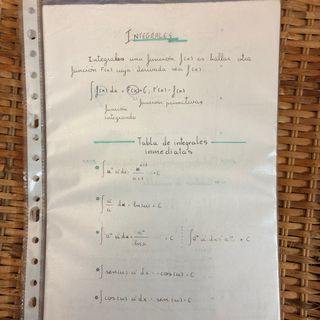 INTEGRALES
Integrales una función f(x) es hallar otra
función F(x) cuya derivada sea f(x).
∫ f(x) dx = F(x) + C, F'(x) = f(x)
función función primitiva
integrando
Tabla de integrales
inmediatas
• ∫ uⁿ u' dx = uⁿ⁺¹/n+1 + C
• ∫ u'/u dx = ln(u) + C
• ∫ aᵘ u' dx = aᵘ/ln a + C ∫ eᵘ u' dx = eᵘ + C
• ∫ sen(u) u' dx = -cos(u) + C
• ∫ cos(u) u' dx = sen(u) + C